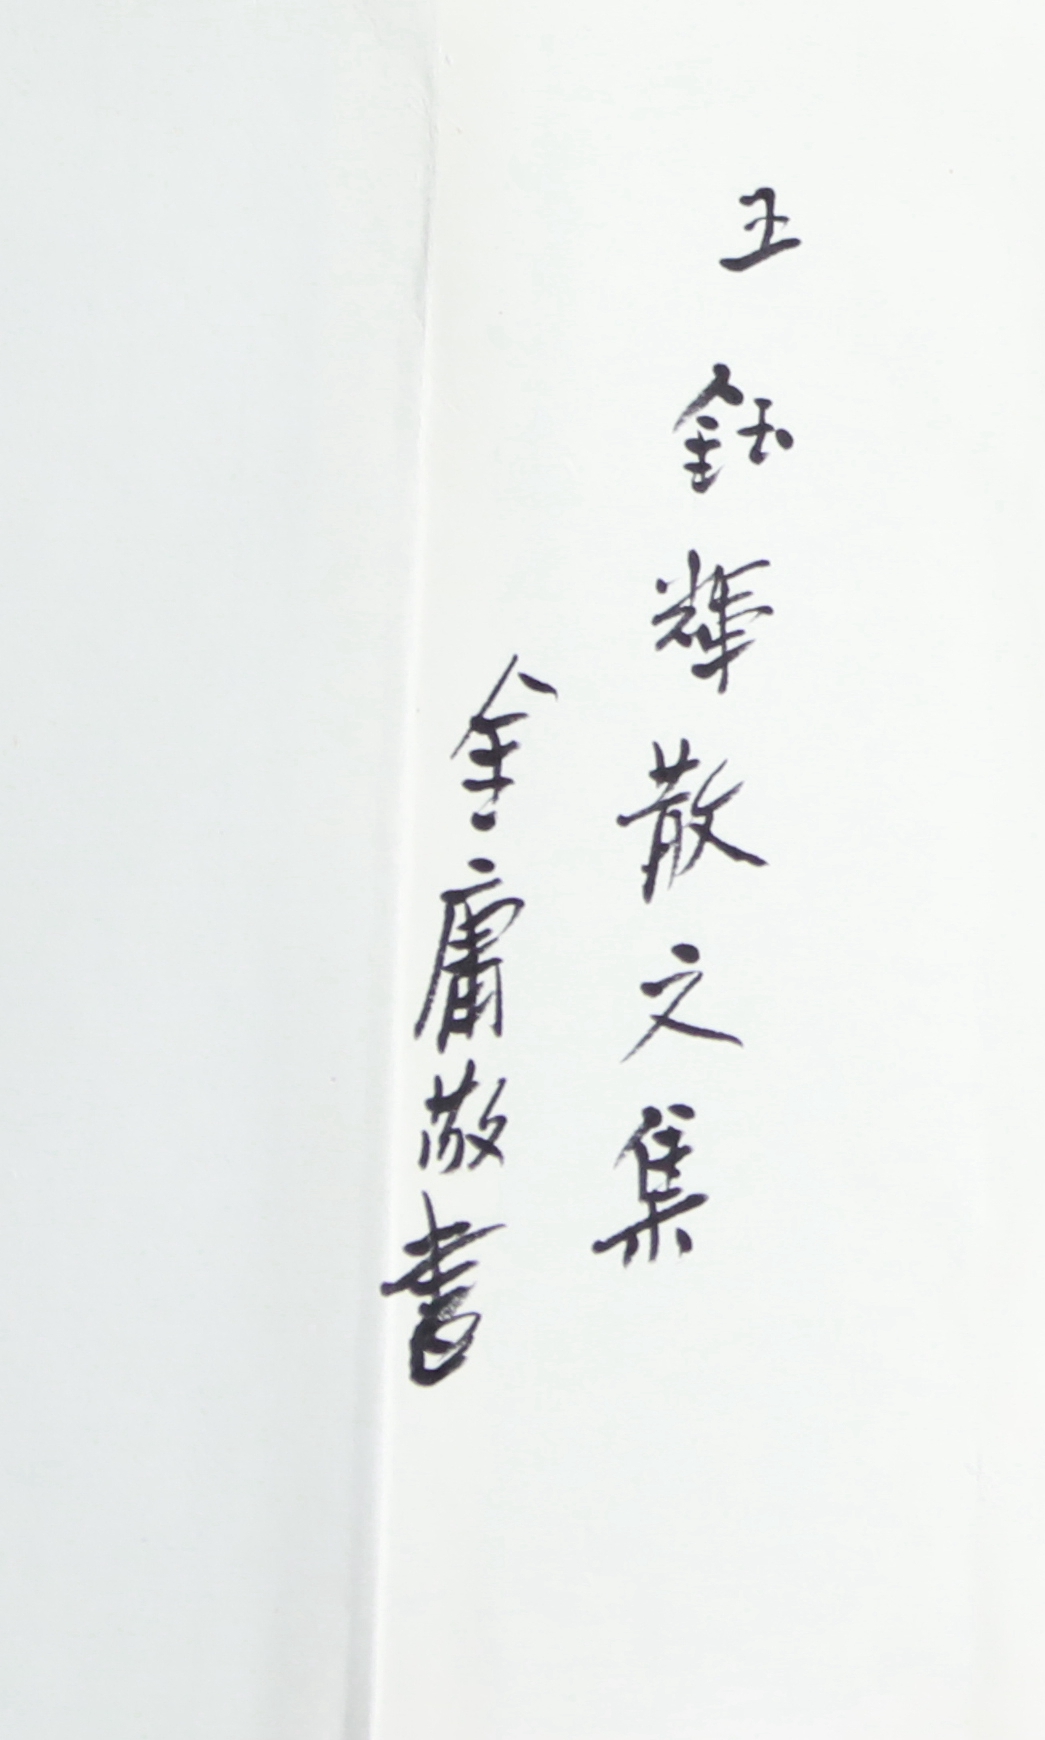 王鈺輝散文集
金庸敬書